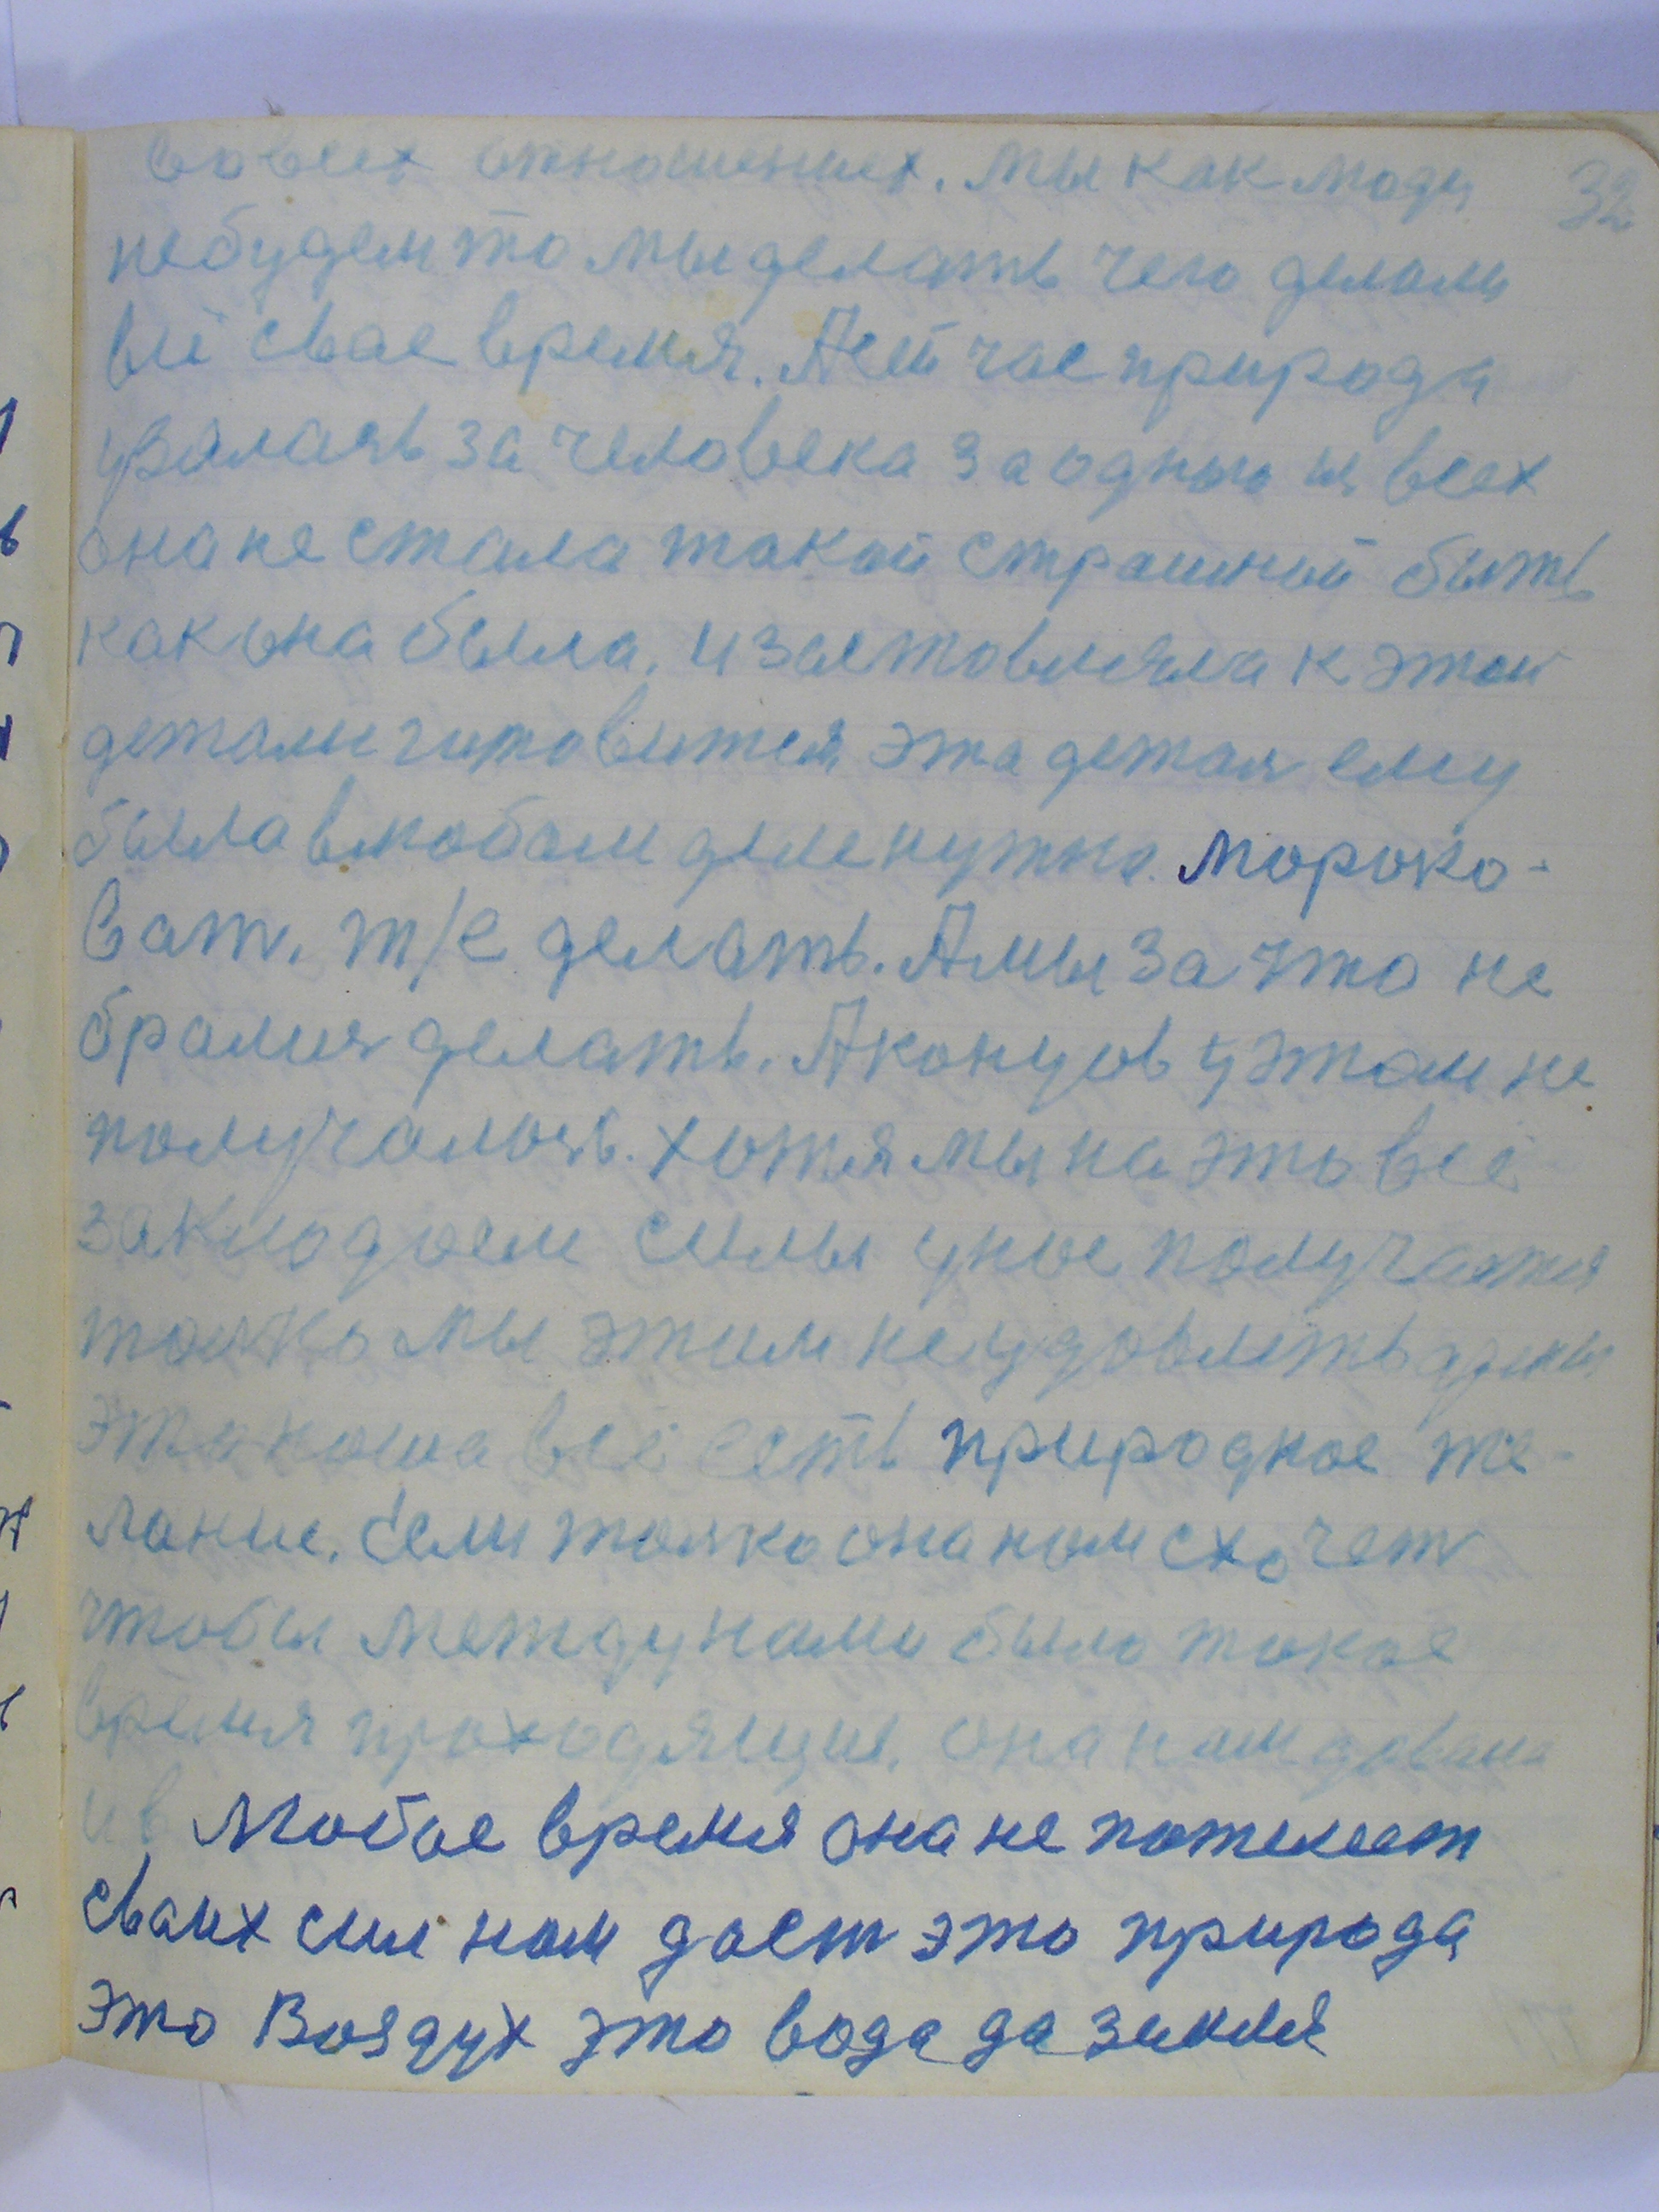 32
вовсех отношениех. мы как люди
небудем то мы делать чего делали
всё свае время. А сей час природа
узялась за человека за одного из всех
она не стала такой страшной быть
как она была, и заставляла к этой
детали готовится, эта деталь ему
была влюбом деле нужна. мороко-
ват. т/е делать. А мы за что не
бралися делать. А концов у этом не
получалось. хотя мы на это всё
закладаем силы унас получается
толко мы этим не
это наша всё есть природное же-
лание. Если толко она нам схочет
чтобы между нами было такое
время проходящие. она нам давала
и в любое время она не пожелеет
сваих сил нам даст это природа
это Воздух это вода да земля